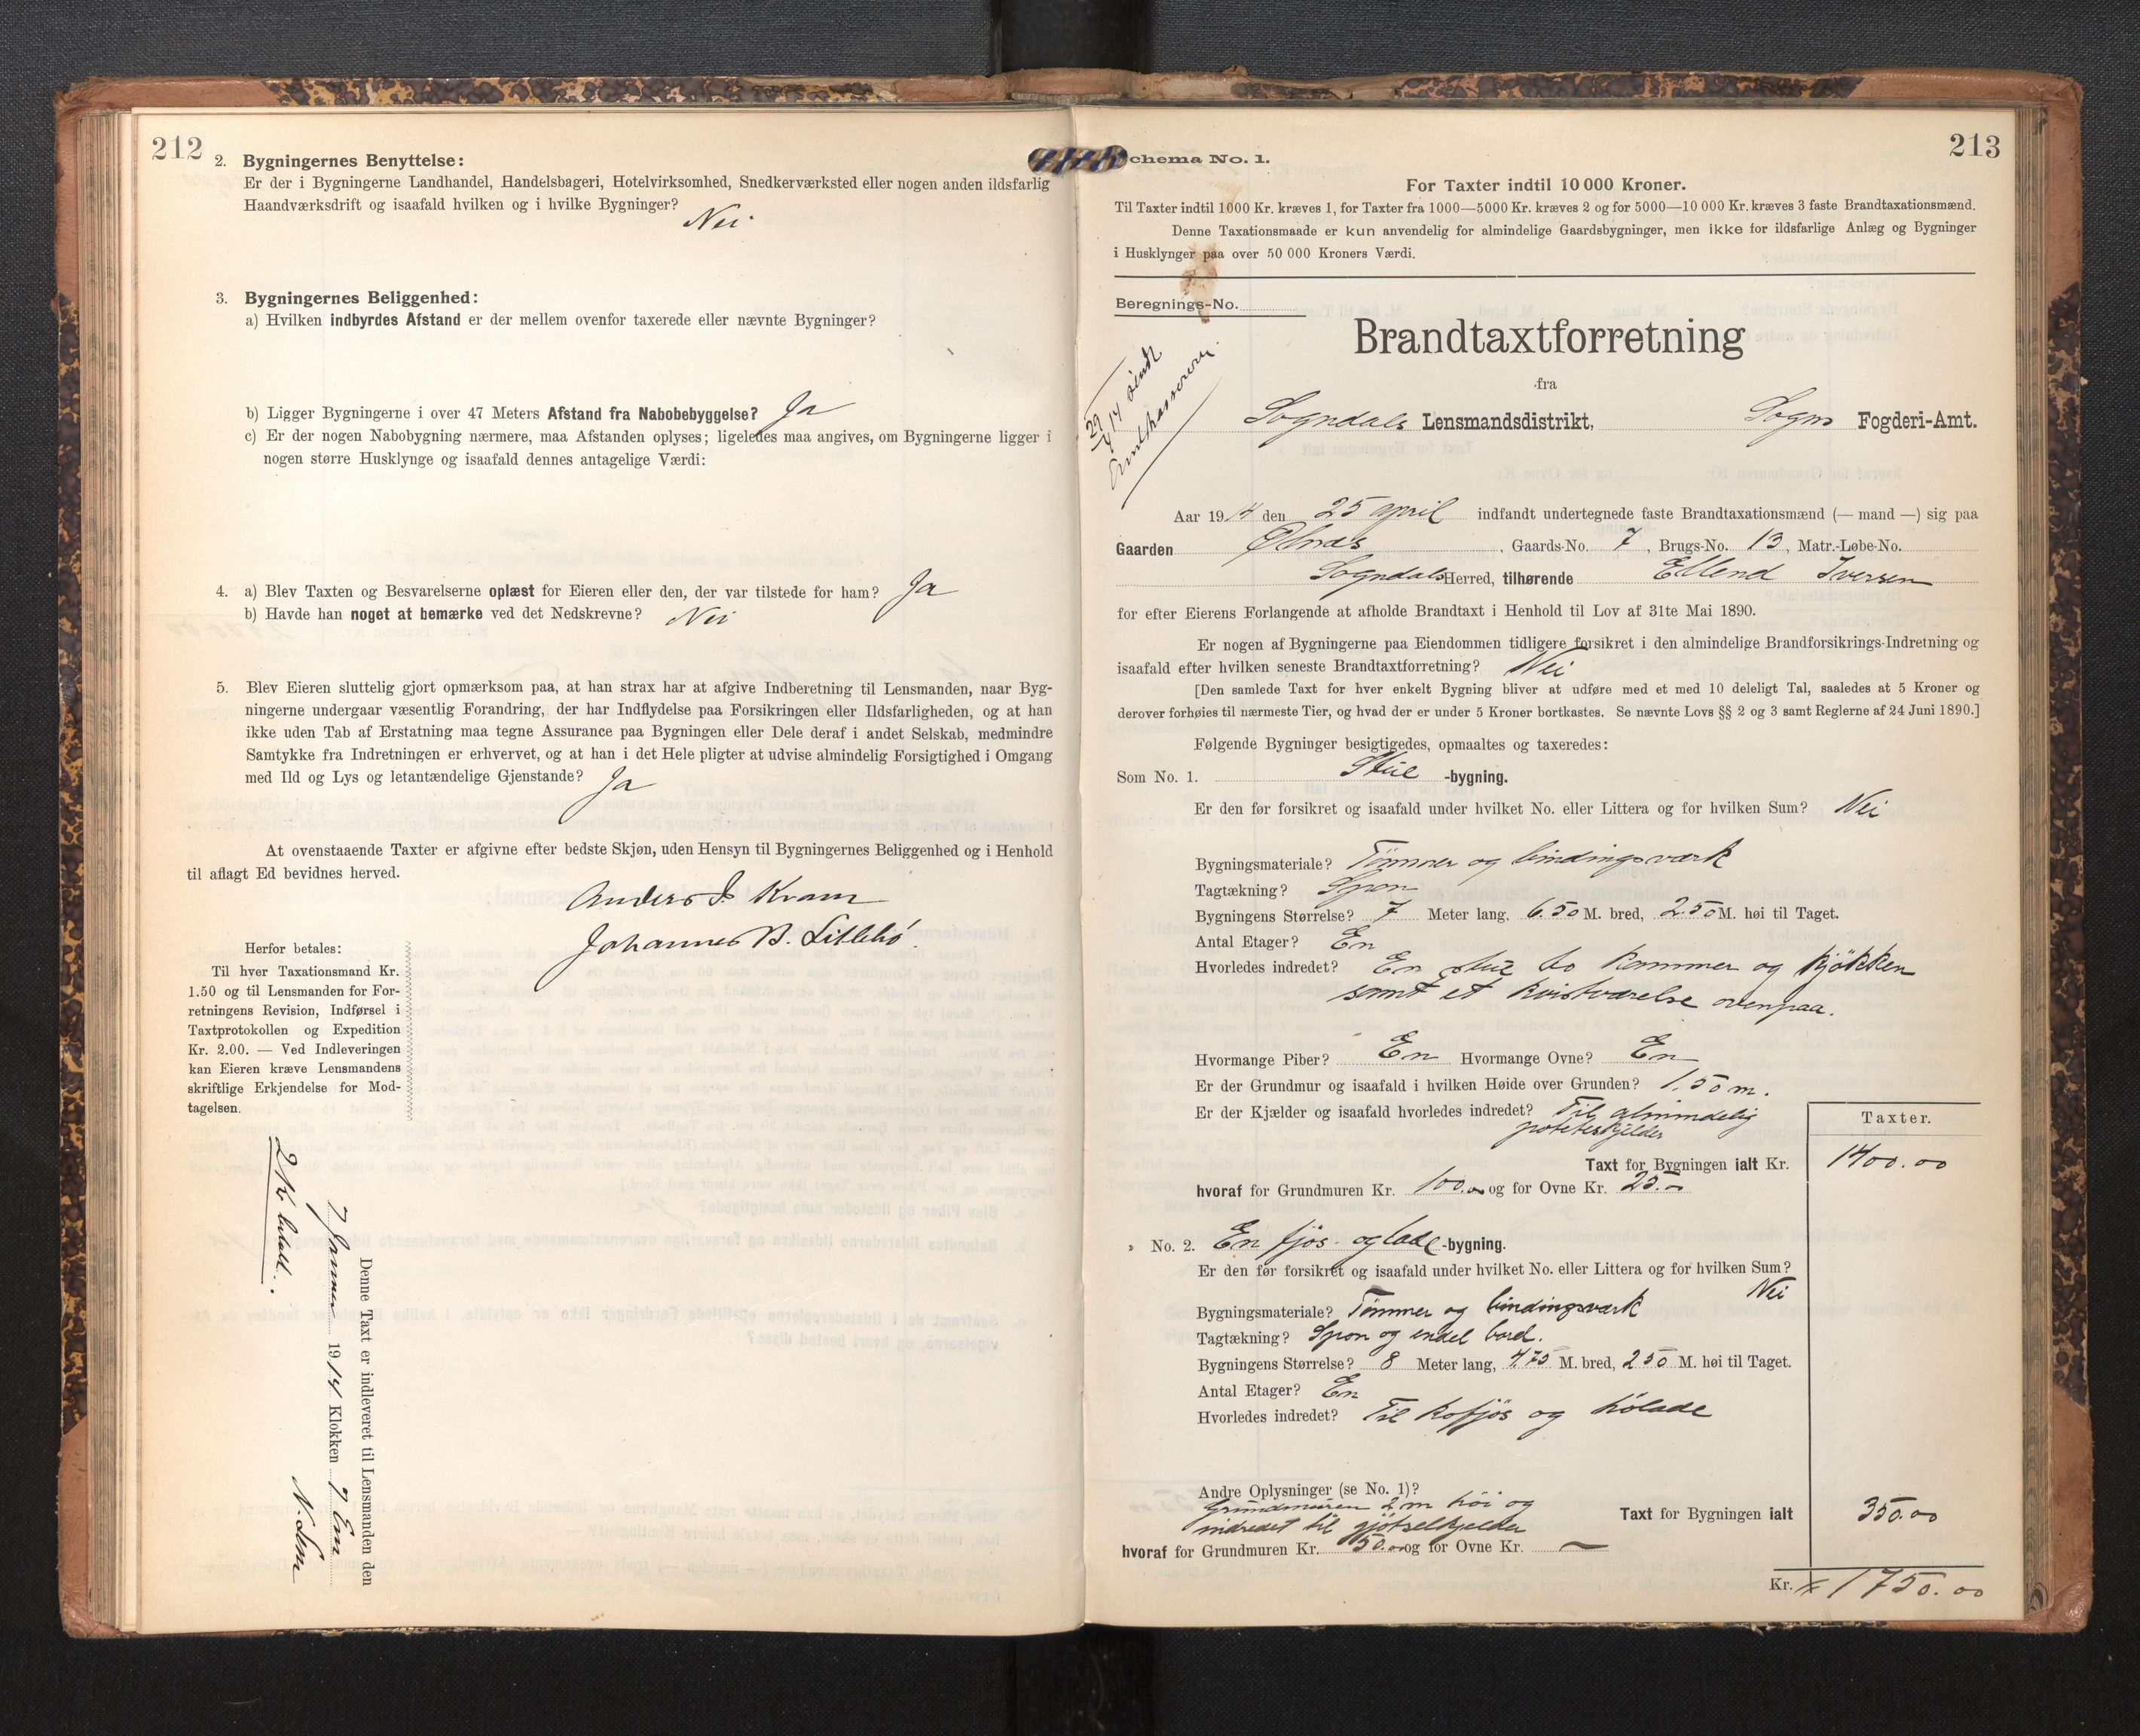 212
2. Bygningernes Benyttelse:
Er der i Bygningerne Landhandel, Handelsbageri, Hotelvirksomhed, Snedkerværksted eller nogen anden ildsfarlig
Haandværksdrift og isaafald hvilken og i hvilke Bygninger?
Nei
3. Bygningernes Beliggenhed:
a) Hvilken indbyrdes Afstand er der mellem ovenfor taxerede eller nævnte Bygninger?
b) Ligger Bygningerne i over 47 Meters Afstand fra Nabobebyggelse? Ja
c) Er der nogen Nabobygning nærmere, maa Afstanden oplyses; ligeledes maa angives, om Bygningerne ligger i
nogen større Husklynge og isaafald dennes antagelige Værdi:
4. a) Blev Taxten og Besvarelserne oplæst for Eieren eller den, der var tilstede for ham? Ja
b) Havde han noget at bemærke ved det Nedskrevne? Nei
5. Blev Eieren sluttelig gjort opmærksom paa, at han strax har at afgive Indberetning til Lensmanden, naar Byg-
ningerne undergaar væsentlig Forandring, der har Indflydelse paa Forsikringen eller Ildsfarligheden, og at han
ikke uden Tab af Erstatning maa tegne Assurance paa Bygningen eller Dele deraf i andet Selskab, medmindre
Samtykke fra Indretningen er erhvervet, og at han i det Hele pligter at udvise almindelig Forsigtighed i Omgang
med Ild og Lys og letantændelige Gjenstande? Ja
At ovenstaaende Taxter er afgivne efter bedste Skjøn, uden Hensyn til Bygningernes Beliggenhed og i Henhold
til aflagt Ed bevidnes herved.
Anders J. Kvam
Johannes B. Litlebö.
Herfor betales:
Til hver Taxationsmand Kr.
1.50 og til Lensmanden for For-
retningens Revision, Indførsel i
Taxtprotokollen og Expedition
Kr. 2.00. — Ved Indleveringen
kan Eieren kræve Lensmandens
skriftlige Erkjendelse for Mod-
tagelsen.
2 Kr betalt.
Denne Taxt er indleveret til Lensmanden den
7 1914 Klokken 7 Em
213
Schema No. 1.
For Taxter indtil 10 000 Kroner.
Til Taxter indtil 1000 Kr. kræves 1, for Taxter fra 1000—5000 Kr. kræves 2 og for 5000—10 000 Kr. kræves 3 faste Brandtaxationsmænd.
Denne Taxationsmaade er kun anvendelig for almindelige Gaardsbygninger, men ikke for ildsfarlige Anlæg og Bygninger
i Husklynger paa over 50 000 Kroners Værdi.
Beregnings-No.
Brandtaxtforretning
fra
Sogndals Lensmandsdistrikt, Sogns Fogderi-Amt.
Aar 1914 den 25 april indfandt undertegnede faste Brandtaxationsmænd (— mand —) sig paa
Gaarden Ølnæs, Gaards-No. 7, Brugs-No. 13, Matr.-Løbe-No.
Sogndals Herred, tilhørende Ellend Iversen
for efter Eierens Forlangende at afholde Brandtaxt i Henhold til Lov af 31te Mai 1890.
Er nogen af Bygningerne paa Eiendommen tidligere forsikret i den almindelige Brandforsikrings-Indretning og
isaafald efter hvilken seneste Brandtaxtforretning? Nei
[Den samlede Taxt for hver enkelt Bygning bliver at udføre med et med 10 deleligt Tal, saaledes at 5 Kroner og
derover forhøies til nærmeste Tier, og hvad der er under 5 Kroner bortkastes. Se nævnte Lovs §§ 2 og 3 samt Reglerne af 24 Juni 1890.]
Følgende Bygninger besigtigedes, opmaaltes og taxeredes:
Som No. 1. Stue -bygning.
Er den før forsikret og isaafald under hvilket No. eller Littera og for hvilken Sum? Nei
Bygningsmateriale? Tömmer og bindingsværk
Tagtækning? Spon
Bygningens Størrelse? 7 Meter lang, 6.50 M. bred, 2.50 M. høi til Taget.
Antal Etager? En
Hvorledes indredet? En stue to kammer og kjökken
samt et kvistværelse ovenpaa.
Hvormange Piber? En Hvormange Ovne? En
Er der Grundmur og isaafald i hvilken Høide over Grunden? 1.50 m.
Er der Kjælder og isaafald hvorledes indredet? Til almindelig
potetkjelder
Taxter.
Taxt for Bygningen ialt Kr. 1400.00
hvoraf for Grundmuren Kr. 100.00 og for Ovne Kr. 25.—
No. 2. En fjös- og lade -bygning.
Er den før forsikret og isaafald under hvilket No. eller Littera og for hvilken Sum?
Nei
Bygningsmateriale? Tömmer og bindingsværk
Tagtækning? Spon og endel bord.
Bygningens Størrelse? 8 Meter lang, 4.75 M. bred, 2.50 M. høi til Taget.
Antal Etager? En
Hvorledes indredet? Til kofjös og hölade
Andre Oplysninger (se No. 1)?
Grundmuren 2 m höi og
indredet til gjötselkjelder
Taxt for Bygningen ialt 350.00
hvoraf for Grundmuren Kr. 50.00 og for Ovne Kr. —
Kr. 1750.00